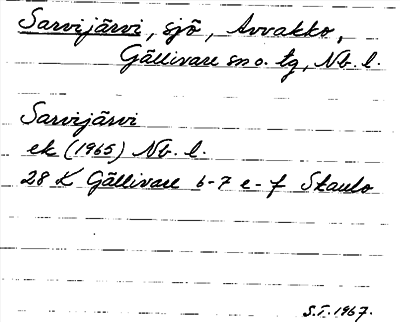 Sarvijärvi, sjö, Avvakko,
Gällivare sn o. tg, Nb. l.
Sarvijärvi
ek (1965) Nb. l.
28 K Gällivare 6-7 e-f Skaulo
S.T. 1967.